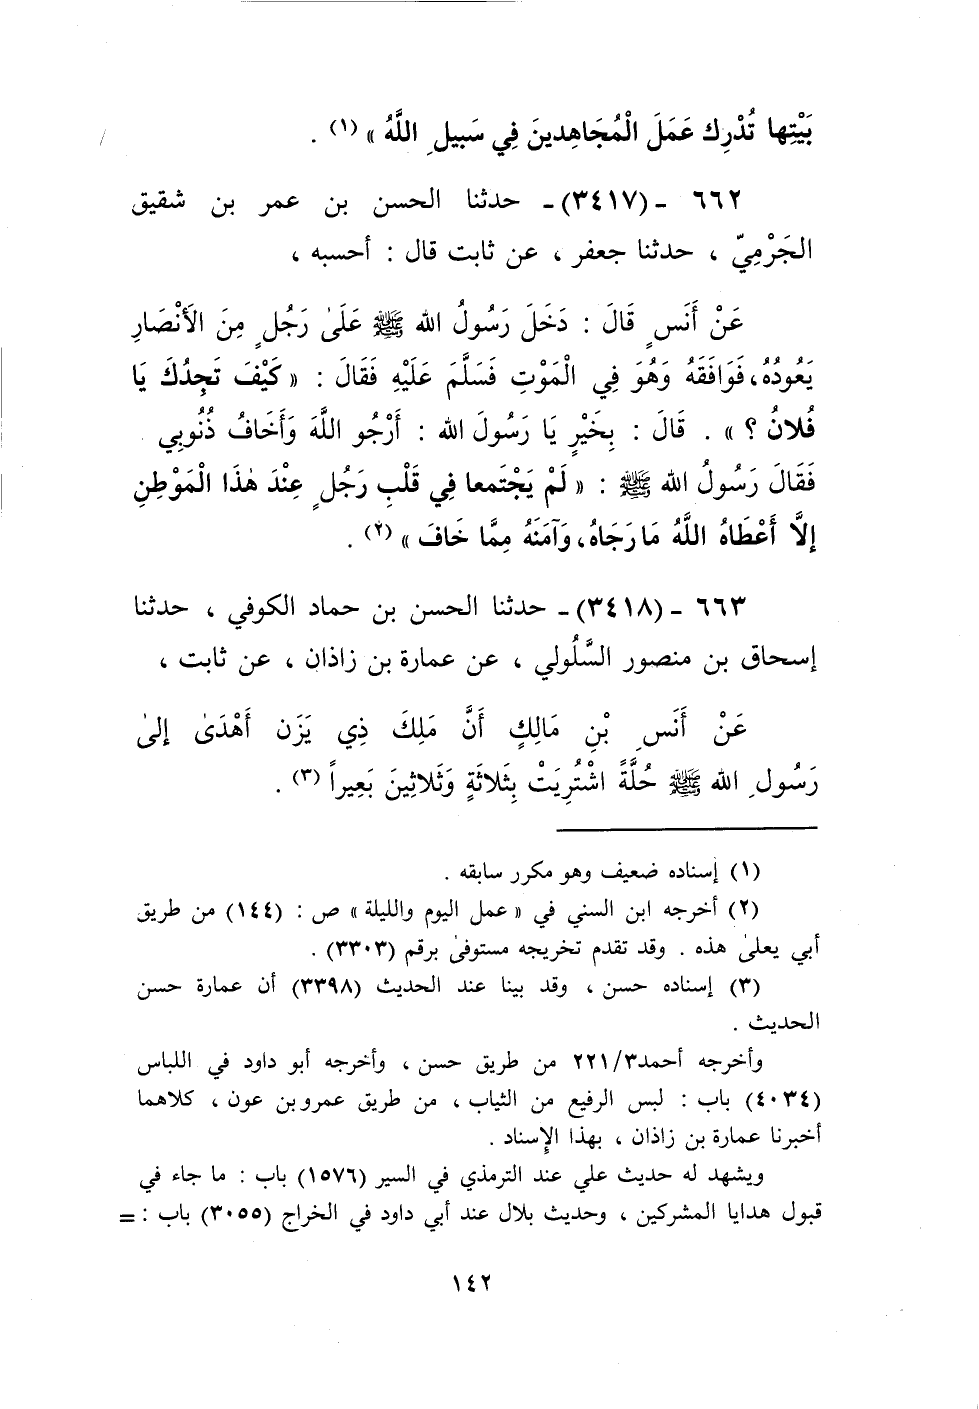 بَيْتِها تُدْرِك عَمَلَ الْمُجَاهِدينَ فِي سَبيلِ اللَّهُ » (١) .
٦٦٢ - (٣٤١٧)- حدثنا الحسن بن عمر بن شقيق
الجَرْمِيّ ، حدثنا جعفر ، عن ثابت قال : أحسبه ،
عَنْ أَنَسٍ قَالَ : دَخَلَ رَسُولُ الله ﷺ عَلَىٰ رَجُلٍ مِنَ الأَنْصَارِ
يَعُودُهُ، فَوَافَقَهُ وَهُوَ فِي الْمَوْتِ فَسَلَّمَ عَلَيْهِ فَقَالَ : « كَيْفَ تَجِدُكَ يَا
فُلانُ ؟ » . قَالَ : بِخَيْرٍ يَا رَسُولَ الله : أَرْجُو اللَّهَ وَأَخَافُ ذُنُوبِي .
فَقَالَ رَسُولُ الله ﷺ : « لَمْ يَجْتَمعا فِي قَلْبِ رَجُلٍ عِنْدَ هٰذَا الْمَوْطِنِ
إلَّا أَعْطَاهُ اللَّهُ مَا رَجَاهُ، وَآمَنَهُ مِمَّا خَافَ » (٢) .
٦٦٣ - (٣٤١٨)- حدثنا الحسن بن حماد الكوفي ، حدثنا
إسحاق بن منصور السَّلُولي ، عن عمارة بن زاذان ، عن ثابت ،
عَنْ أَنَسِ بْنِ مَالِكٍ أَنَّ مَلِكَ ذِي يَزَن أَهْدَىٰ إلىٰ
رَسُولِ الله ﷺ حُلَّةً اشْتُرِيَتْ بِثَلاثَةٍ وَثَلاثِينَ بَعِيراً (٣) .
(١) إسناده ضعيف وهو مكرر سابقه .
(٢) أخرجه ابن السني في « عمل اليوم والليلة » ص : (١٤٤) من طريق
أبي يعلىٰ هذه . وقد تقدم تخريجه مستوفىٰ برقم (٣٣٠٣) .
(٣) إسناده حسن ، وقد بينا عند الحديث (٣٣٩٨) أن عمارة حسن
الحديث .
وأخرجه أحمد ٢٢١/٣ من طريق حسن ، وأخرجه أبو داود في اللباس
(٤٠٣٤) باب : لبس الرفيع من الثياب ، من طريق عمرو بن عون ، كلاهما
أخبرنا عمارة بن زاذان ، بهذا الإسناد .
ويشهد له حديث علي عند الترمذي في السير (١٥٧٦) باب : ما جاء في
قبول هدايا المشركين ، وحديث بلال عند أبي داود في الخراج (٣٠٥٥) باب : =
١٤٢